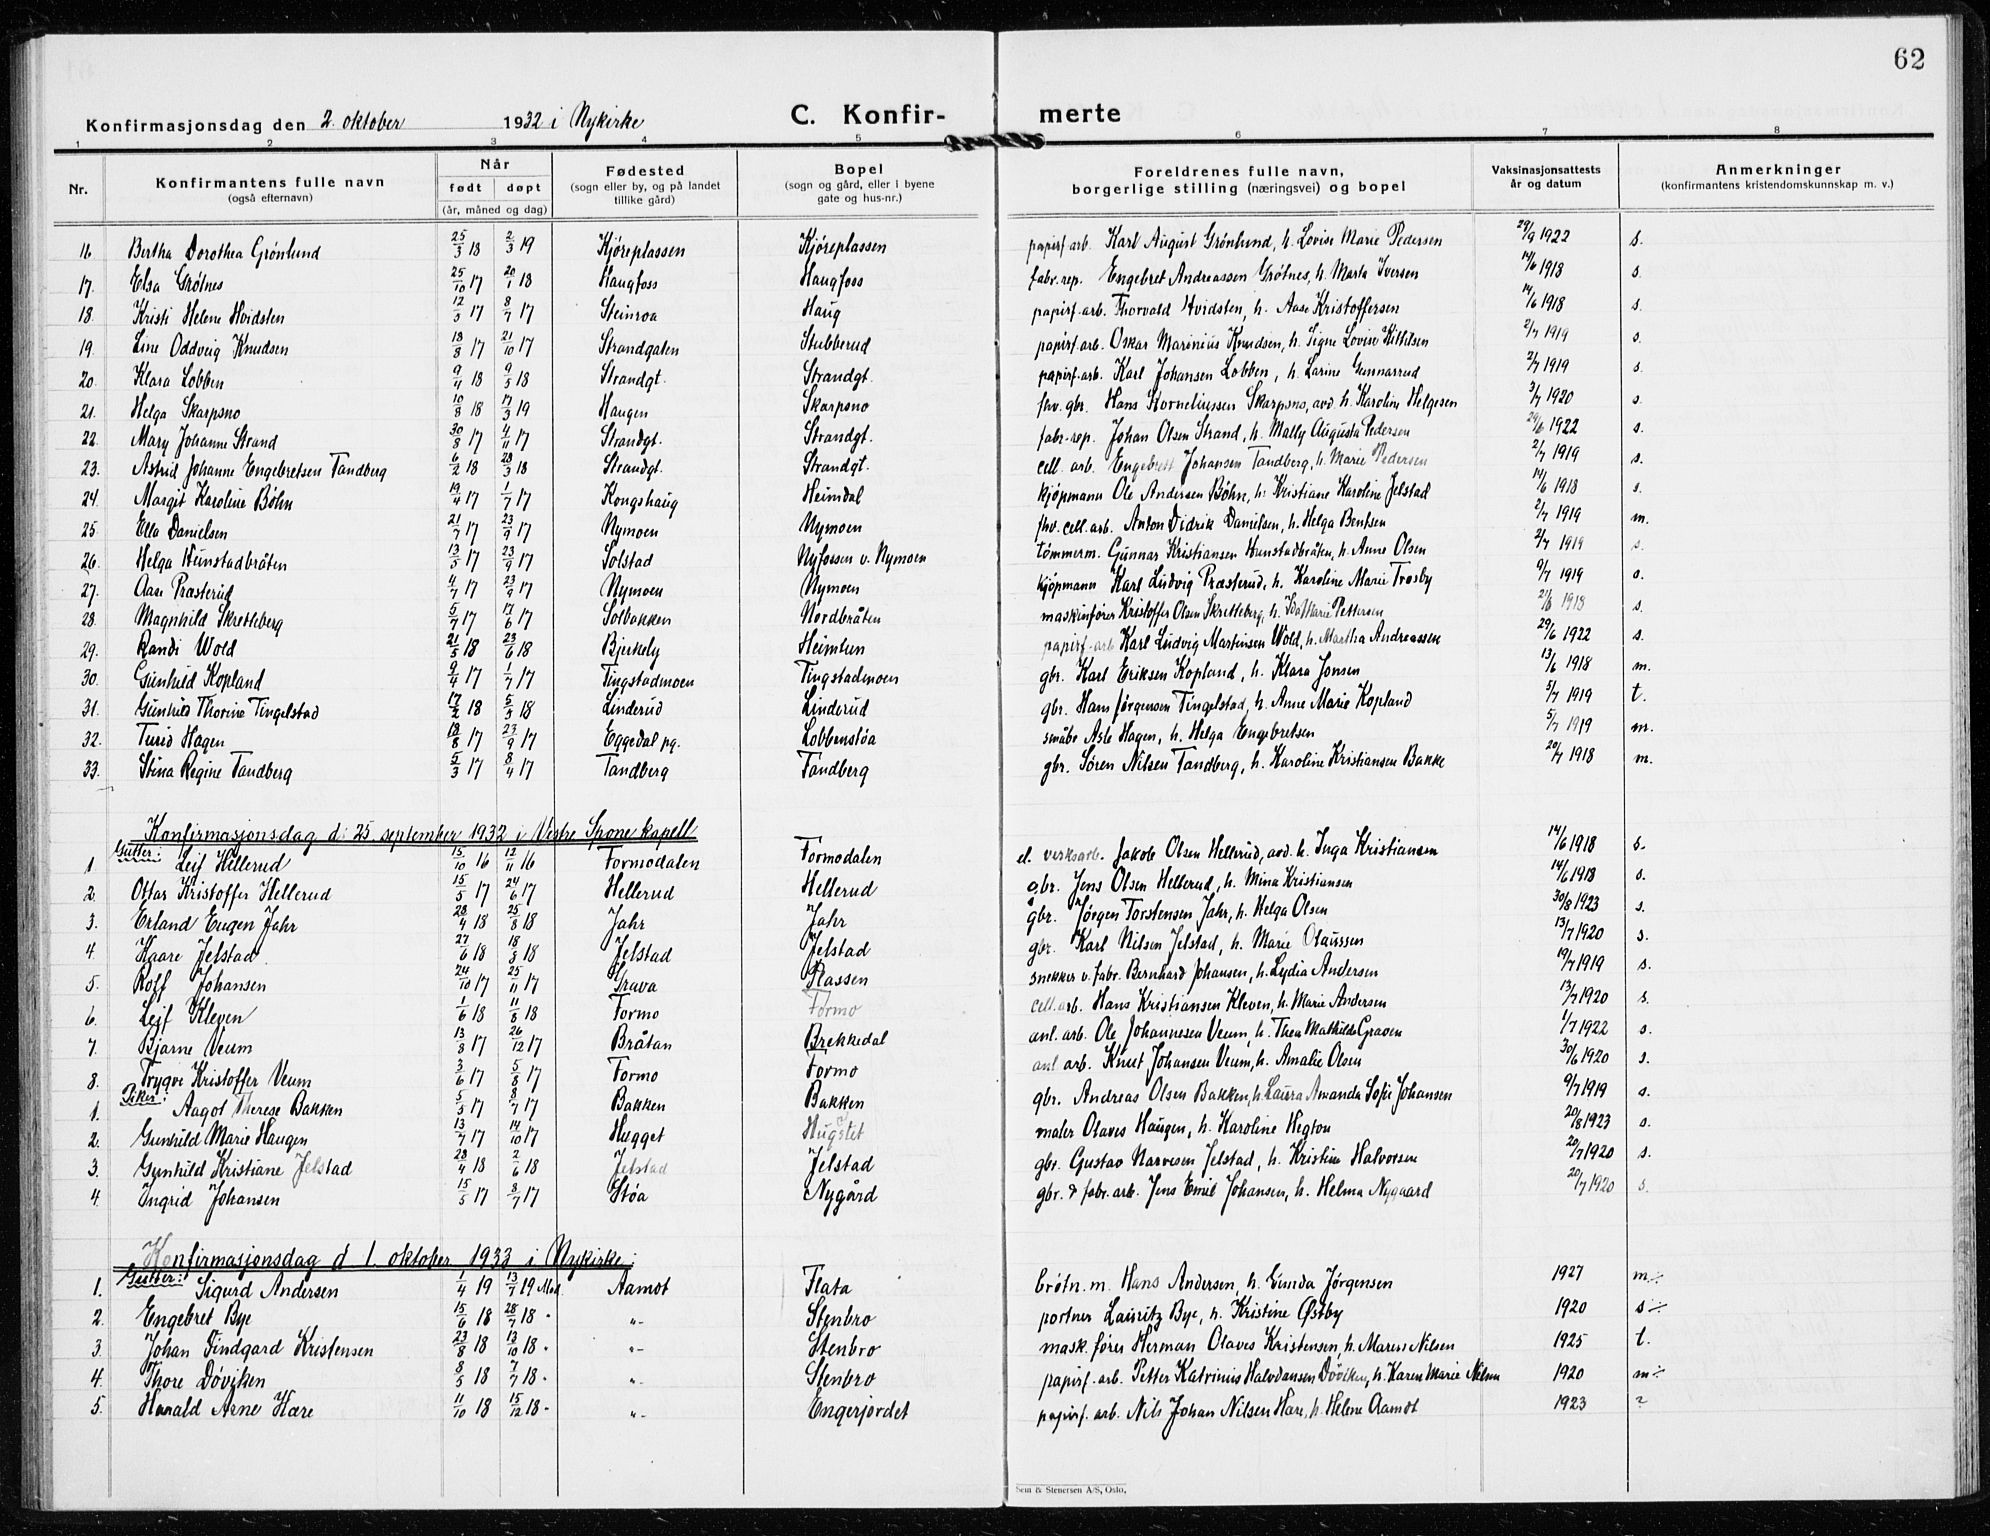 62
Konfirmasjonsdag den 2. oktober 1932 i Nykirke C. Konfir- merte
1 2 3 4 5 6 7 8
Nr. Konfirmantens fulle navn (også efternavn) Når født døpt (år, måned og dag) Fødested (sogn eller by, og på landet tillike gård) Bopel (sogn og gård, eller i byene gate og hus-nr.) Foreldrenes fulle navn, borgerlige stilling (næringsvei) og bopel Vaksinasjonsattests år og datum Anmerkninger (konfirmantens kristendomskunnskap m. v.)
16 Bertha Dorothea Grønlund 25/3 18 2/3 19 Kjøreplassen Kjøreplassen papirf. arb. Karl August Grønlund, h. Lovise Marie Pedersen 29/9 1922 s.
17. Elsa Grøtnes 25/10 17 20/1 18 Haugfoss Haugfoss fabr. rep. Engebret Andreassen Grøtnes, h. Marta Iversen 14/6 1918 s.
18. Kristi Helene Hvidsten 12/3 17 8/7 17 Steinroa Haug papirf. arb. Thorvald Hvidsten, h. Aase Kristoffersen 14/6 1918 s.
19. Line Oddveig Knudsen 18/8 17 21/10 17 Strandgaten Stubberud papirf. arb. Oskar Marinius Knudsen, h. Signe Lovise Kittilsen 2/7 1919 s.
20. Klara Lobben 9/4 18 9/5 18 Strandgt. Strandgt. papirf. arb. Karl Johansen Lobben, h. Larine Gunnarrud 2/7 1919 s.
21. Helga Skarpsno 10/8 18 17/3 19 Haugen Skarpsno fhv. gbr. Hans Korneliussen Skarpsno, avd. h. Karoline Helgesen 3/7 1920 s.
22. Mary Johanne Strand 30/8 17 4/11 17 Strandgt. Strandgt. fabr. rep. Johan Olsen Strand, h. Mally Augusta Pedersen 29/6 1922 s.
23. Astrid Johanne Engebretsen Tandberg 6/2 18 28/3 18 Strandgt. Strandgt. cell. arb. Engebrett Johansen Tandberg, h. Marie Pedersen 2/7 1919 s.
24. Margit Karoline Bøhn 19/4 17 1/7 17 Kongshaug Heimdal kjøpmann Ole Andersen Bøhn, h. Kristiane Karoline Jelstad 14/6 1918 s.
25. Ella Danielsen 21/7 17 23/9 17 Nymoen Nymoen fhv. cell. arb. Anton Didrik Danielsen, h. Helga Bentsen 2/7 1919 m.
26. Helga Hunstadbråten 13/5 17 23/9 17 Solstad Nyfossen v. Nymoen tømmerm. Gunnar Kristiansen Hunstadbråten, h. Anne Olsen 2/7 1919 s.
27. Aase Præsterud 4/7 17 23/9 17 Nymoen Nymoen kjøpmann Karl Ludvig Præsterud, h. Karoline Marie Trosby 9/7 1919 s.
28. Magnhild Skretteberg 5/7 17 17/6 17 Solbakken Nordbråten maskinfører Kristoffer Olsen Skretteberg, h. Ida Marie Pettersen 21/6 1918 s.
29. Randi Wold 21/5 18 23/6 18 Bjerkely Heimlun papirf. arb. Karl Ludvig Martinsen Wold, h. Martha Andreassen 29/6 1922 s.
30. Gunhild Kopland 9/4 17 1/7 17 Tingstadmoen Tingstadmoen gbr. Karl Eriksen Kopland, h. Klara Jonsen 13/6 1918 m.
31. Gunhild Thorine Tingelstad 17/2 18 5/5 18 Linderud Linderud gbr. Hans Jørgensen Tingelstad, h. Anne Marie Kopland 5/7 1919 t.
32. Turid Hagen 18/8 17 23/9 17 Eggedal pg. Lobbenstøa småbr. Asle Hagen, h. Helga Engebretsen 5/7 1919 m.
33. Stina Regine Tandberg 5/3 17 8/4 17 Tandberg Tandberg gbr. Søren Nilsen Tandberg, h. Karoline Kristiansen Bakke 20/7 1918 m.
Konfirmasjonsdag d. 25. september 1932 i Vestre Spone kapell
Gutter:
1 Leif Hellerud 15/10 16 12/11 16 Formodalen Formodalen el. verksarb. Jakob Olsen Hellerud, avd. h. Inga Kristiansen 14/6 1918 s.
2. Ottar Kristoffer Hellerud 15/5 17 24/6 17 Hellerud Hellerud gbr. Jens Olsen Hellerud, h. Mina Kristiansen 14/6 1918 s.
3. Erland Eugen Jahr 28/4 18 25/8 18 Jahr Jahr gbr. Jørgen Torstensen Jahr, h. Helga Olsen 30/8 1923 s.
4. Kaare Jelstad 27/6 18 18/8 18 Jelstad Jelstad gbr. Karl Nilsen Jelstad, h. Marie Olaussen 13/7 1920 s.
5. Rolf Johansen 24/10 17 25/11 17 Grava Plassen snekker v. fabr. Bernhard Johansen, h. Lydia Andersen 19/7 1919 s.
6. Leif Kleven 1/6 18 11/8 18 Formo Formo cell. arb. Hans Kristiansen Kleven, h. Marie Andersen 13/7 1920 s.
7. Bjarne Veum 13/8 17 26/12 17 Bråtan Brekkedal anl. arb. Ole Johannesen Veum, h. Thea Mathilde Graven 1/7 1922 s.
8. Trygve Kristoffer Veum 3/6 17 5/8 17 Formo Formo anl arb. Knut Johansen Veum, h. Amalie Olsen 30/6 1920 s.
Piker:
1. Aagot Therese Bakken 5/5 17 8/7 17 Bakken Bakken gbr. Andreas Olsen Bakken, h. Laura Amanda Sofie Johansen 9/7 1919 s.
2. Gunhild Marie Haugen 13/7 17 14/10 17 Hugget Hugstet maler Olaves Haugen, h. Karoline Hegton 20/8 1923 s.
3. Gunhild Kristiane Jelstad 28/4 18 2/6 18 Jelstad Jelstad gbr. Gustav Narvesen Jelstad, h. Kristine Halvorsen 20/7 1920 s.
4. Ingrid Johansen 15/5 17 8/7 17 Støa Nygård gbr. & fabr. arb. Jens Emil Johansen, h. Helma Nygaard 20/7 1920 s.
Konfirmasjonsdag d 1. oktober 1933 i Nykirke:
Gutter:
1. Sigurd Andersen 1/4 19 13/7 19 Mod. Aamot Flata brøtn. m. Hans Andersen, h. Gunda Jørgensen 1927 m÷
2. Engebret Bye 15/6 18 28/7 18 " "- Stenbro portner Lauritz Bye, h. Kristine Østby 1920 s÷
3. Johan Findgard Kristensen 23/8 18 13/10 18 " "- Stenbro mask. fører Herman Olaves Kristensen, h. Maren Nilsen 1925 t.
4. Thore Døviken 8/5 18 7/7 18 - "- Stenbro papirf. arb. Petter Katrinius Halvdansen Døviken, h. Karen Marie Nilsen 1920 m÷
5. Harald Arne Hære 11/10 18 15/12 18 - "- Engerjordet papirf. arb. Nils Johan Nilsen Hære, h. Helene Aamot 1923 ?
Sem & Stenersen A/S, Oslo.